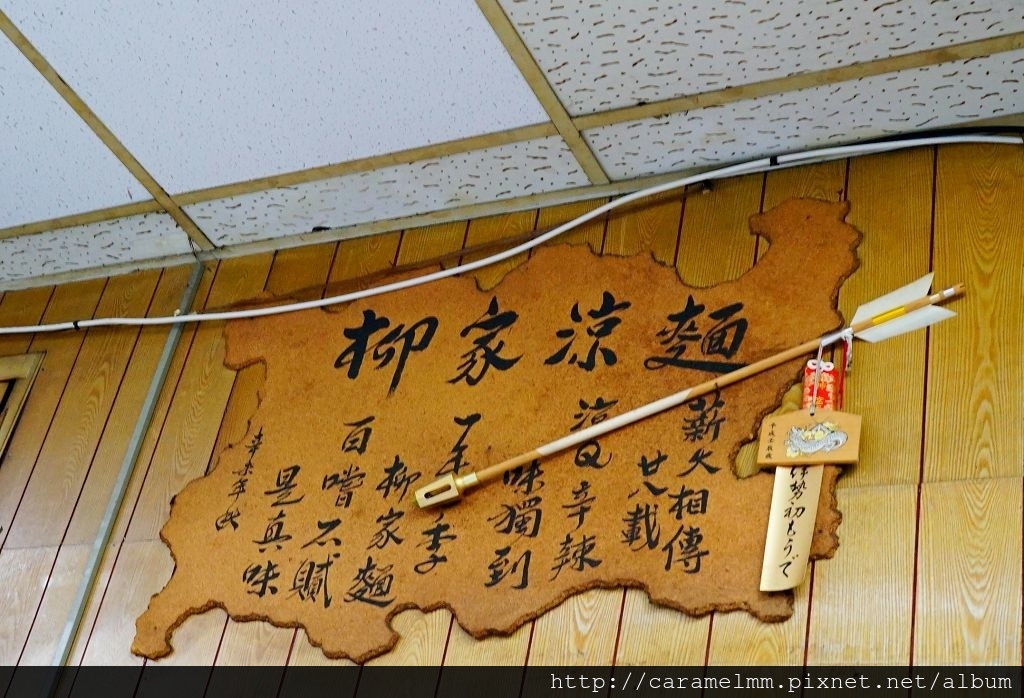 柳家涼麵
薪火相傳
廿八載
涼又辛辣
味獨到
一年季
柳家麵
百嚐不膩
是真味
辛未年秋
伊勢初もうで
http://caramelmm.pixnet.net/album